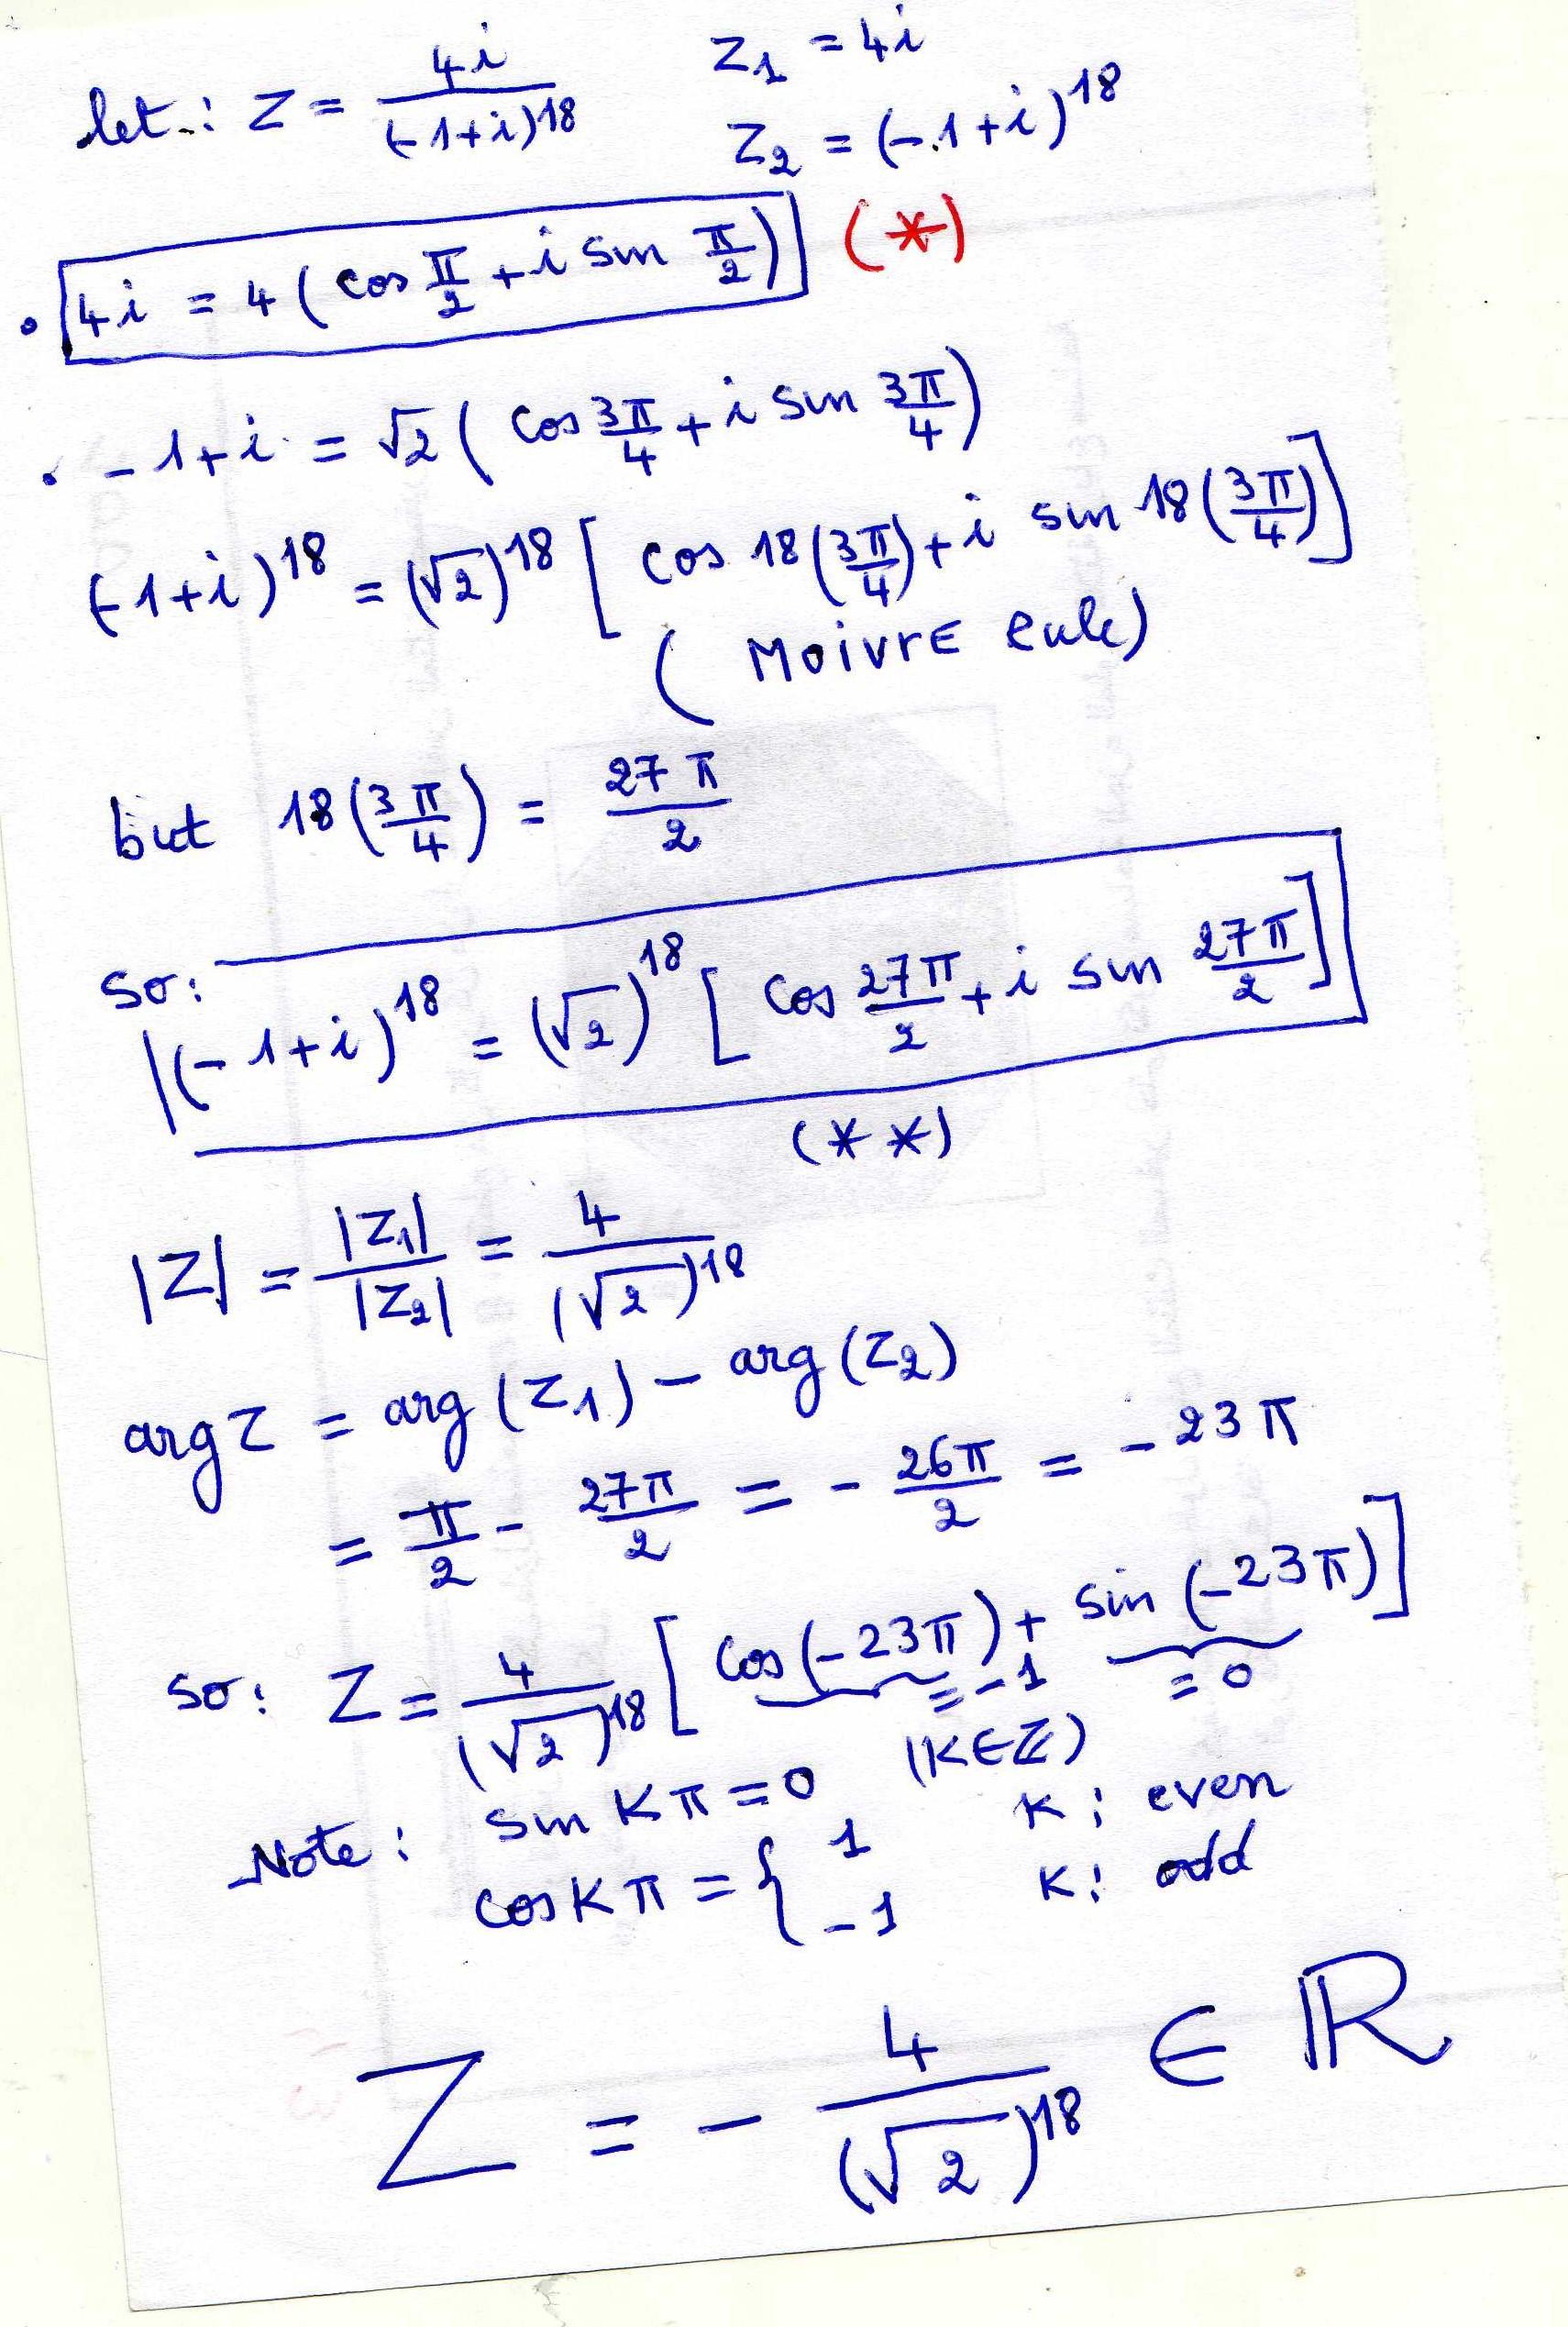 let : Z = 4i / (-1+i)^18   Z₁ = 4i
Z₂ = (-1+i)^18
• 4i = 4 ( cos π/2 + i sin π/2 ) (*)
• -1+i = √2 ( cos 3π/4 + i sin 3π/4 )
(-1+i)^18 = (√2)^18 [ cos 18(3π/4) + i sin 18(3π/4) ]
( MOIVRE rule)
but 18(3π/4) = 27π/2
so: (-1+i)^18 = (√2)^18 [ cos 27π/2 + i sin 27π/2 ]
(* *)
|Z| = |Z₁| / |Z₂| = 4 / (√2)^18
arg Z = arg (Z₁) - arg (Z₂)
= π/2 - 27π/2 = - 26π/2 = - 23π
so: Z = 4 / (√2)^18 [ cos(-23π) + sin (-23π) ]
= -1 = 0
Note : sin Kπ = 0 (K∈ℤ)
cos Kπ = { 1 K : even
-1 K : odd
Z = - 4 / (√2)^18 ∈ ℝ